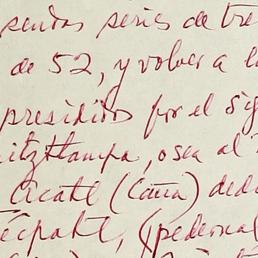 sendas series de tre
de 52, y volver a l
presididos por el sig
uitztlampa, o sea al
Acatl (Caña) dedi
Técpatl, (pedernal